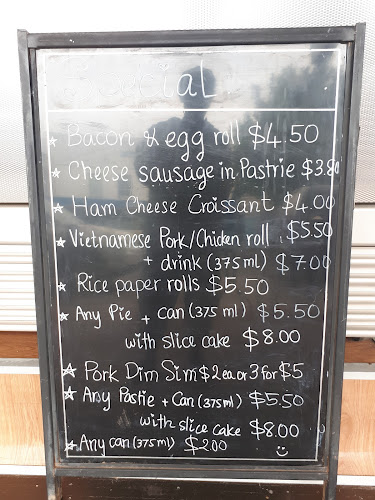 Special
☆ Bacon & egg roll $4.50
☆ Cheese sausage in Pastrie $3.80
☆ Ham Cheese Croissant $4.00
☆ Vietnamese Pork/Chicken roll $5.50
+ drink (375ml) $7.00
☆ Rice paper rolls $5.50
☆ Any Pie + can (375 ml) $5.50
with slice cake $8.00
☆ Pork Dim Sim $2 ea or 3 for $5
☆ Any Pastie + Can (375ml) $5.50
with slice cake $8.00
☆ Any can (375ml) $2.00